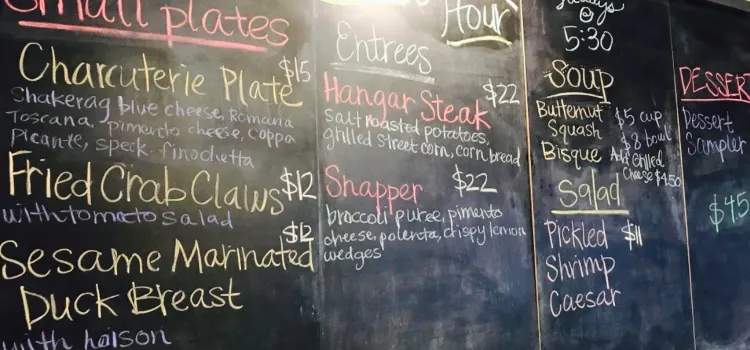 Small plates
Charcuterie Plate $15
Shakerag blue cheese, Romana
Toscana. pimento cheese, coppa
Picante, speck. finochetta
Fried Crab Claws $12
with tomato salad
$12
Sesame Marinated
Duck Breast
with hoison
Hour
Entrees
Hangar Steak $22
salt roasted potatoes,
grilled street corn, corn bread
Snapper $22
broccoli puree, pimento
cheese, polenta, crispy lemon
wedges
@
5:30
Soup
Butternut $5 cup
Squash $8 bowl
Bisque Add Grilled
Cheese $4.50
Salad
Pickled $11
Shrimp
Caesar
DESSER
Dessert
Sampler
$45